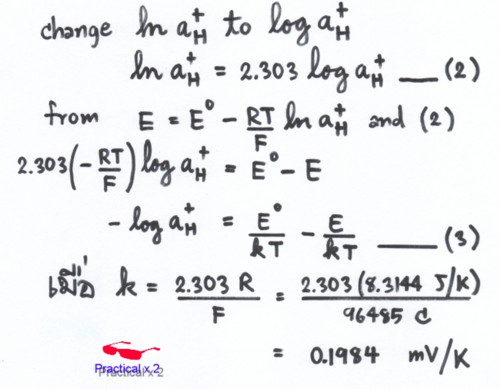 change ln a_H^+ to log a_H^+
ln a_H^+ = 2.303 log a_H^+ ___ (2)
from E = E° - RT/F ln a_H^+ and (2)
2.303(-RT/F) log a_H^+ = E° - E
- log a_H^+ = E°/kT - E/kT ___ (3)
เมื่อ k = 2.303 R/F = 2.303 (8.3144 J/K)/96485 C
= 0.1984 mV/K
Practical x 2